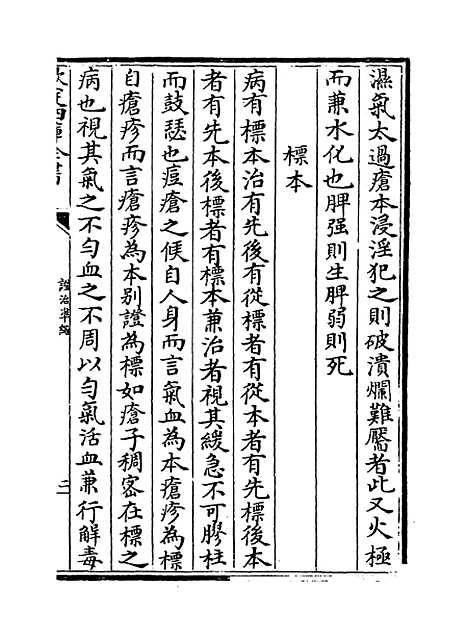 濕氣太過瘡本浸淫犯之則破潰爛難靨者此又火極
而兼水化也脾强則生脾弱則死
標本
病有標本治有先後有從標者有從本者有先標後本
者有先本後標者有標本兼治者視其緩急不可膠柱
而鼓瑟也痘瘡之候自人身而言氣血為本瘡疹為標
自瘡疹而言瘡疹為本别證為標如瘡子稠宻在標之
病也視其氣之不勻血之不周以勻氣活血兼行解毒
欽定四庫全書
證治準繩
二